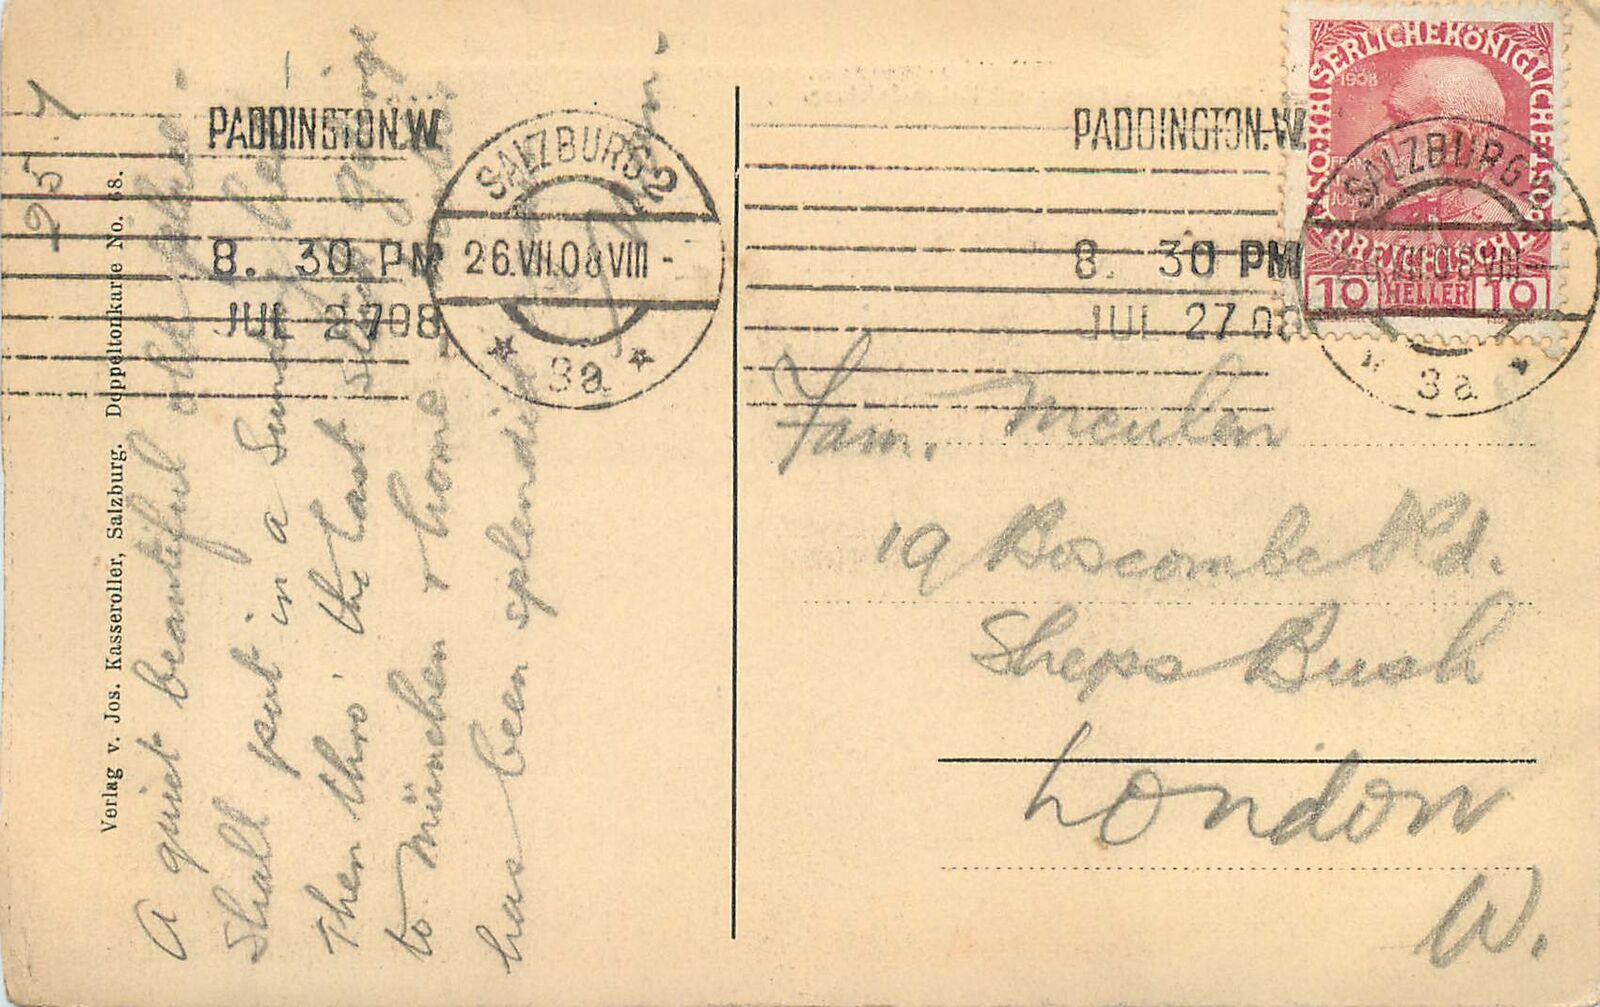 25 7
A quiet beautiful old place.
Shall put in a Sunday here
Then thro' the last St. George
to München & home.
has been splendid
Verlag v. Jos. Kasseroller, Salzburg. Doppeltonkarte No. 68.
PADDINGTON.W.
8. 30 PM
JUL 27 08
SALZBURG 2
26.VII.08 VIII -
* 3a *
PADDINGTON.W.
8. 30 PM
JUL 27 08
KAISERLICHE KÖNIGLICHE ÖSTERREICHISCHE POST
1908
10 HELLER 10
SALZBURG 2
26.VII.08 VIII -
* 3a *
Fam. Meulen
19 Boscombe Rd.
Sheps Bush
London
W.